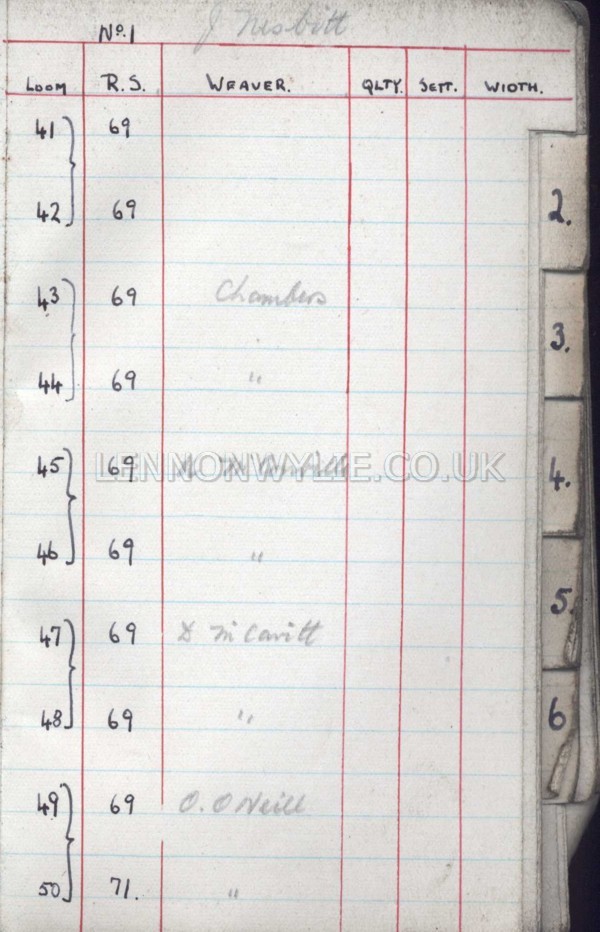 J Nesbitt
No. 1
LOOM R.S. WEAVER. QLTY. SETT. WIDTH.
41 69
42 69
2.
43 69 Chambers
3.
44 69 "
45 69
LENNONWYLIE.CO.UK
4.
46 69 "
5.
47 69 D McCavitt
48 69 "
6
49 69 O. O Neill
50 71. "